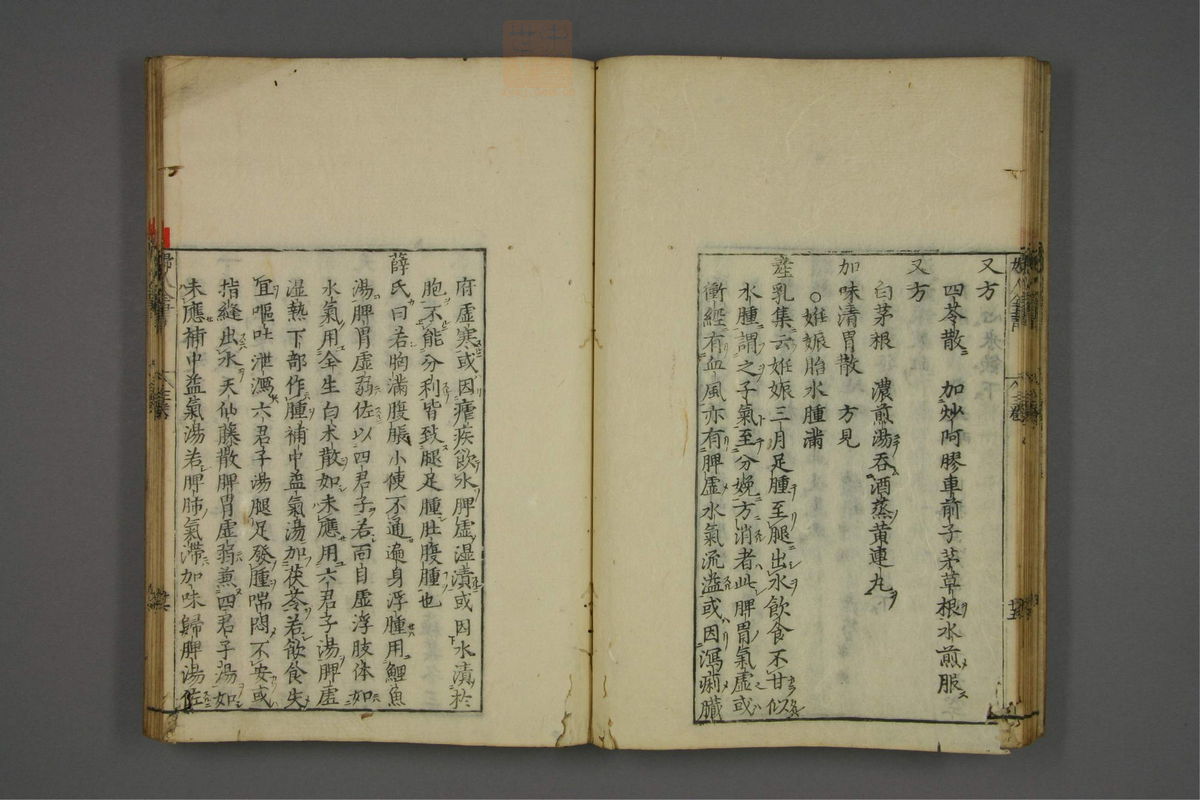 又方
四苓散　加炒阿膠車前子茅草根水煎服
又方
白茅根　濃煎湯吞酒蒸黃連丸
加味清胃散　方見
○姙娠胎水腫滿
產乳集云姙娠三月足腫至腿出水飲食不甘似
水腫謂之子氣至分娩方消者此脾胃氣虛或
衝經有血風亦有脾虛水氣流溢或因瀉痢臟
府虛寒或因瘧疾飲水脾虛湿漬或因水漬於
胞不能分利皆致腿足腫肚腹腫也
薛氏曰若胸滿腹脹小便不通遍身浮腫用鯉魚
湯脾胃虛弱佐以四君子若面目虛浮肢体如
水氣用全生白术散如未應用六君子湯脾虛
湿熱下部作腫補中益氣湯加茯苓若飲食失
宜嘔吐泄瀉六君子湯腿足發腫喘悶不安或
指縫出水天仙藤散脾胃虛弱兼四君子湯如
未應補中益氣湯若脾肺氣滯加味歸脾湯佐